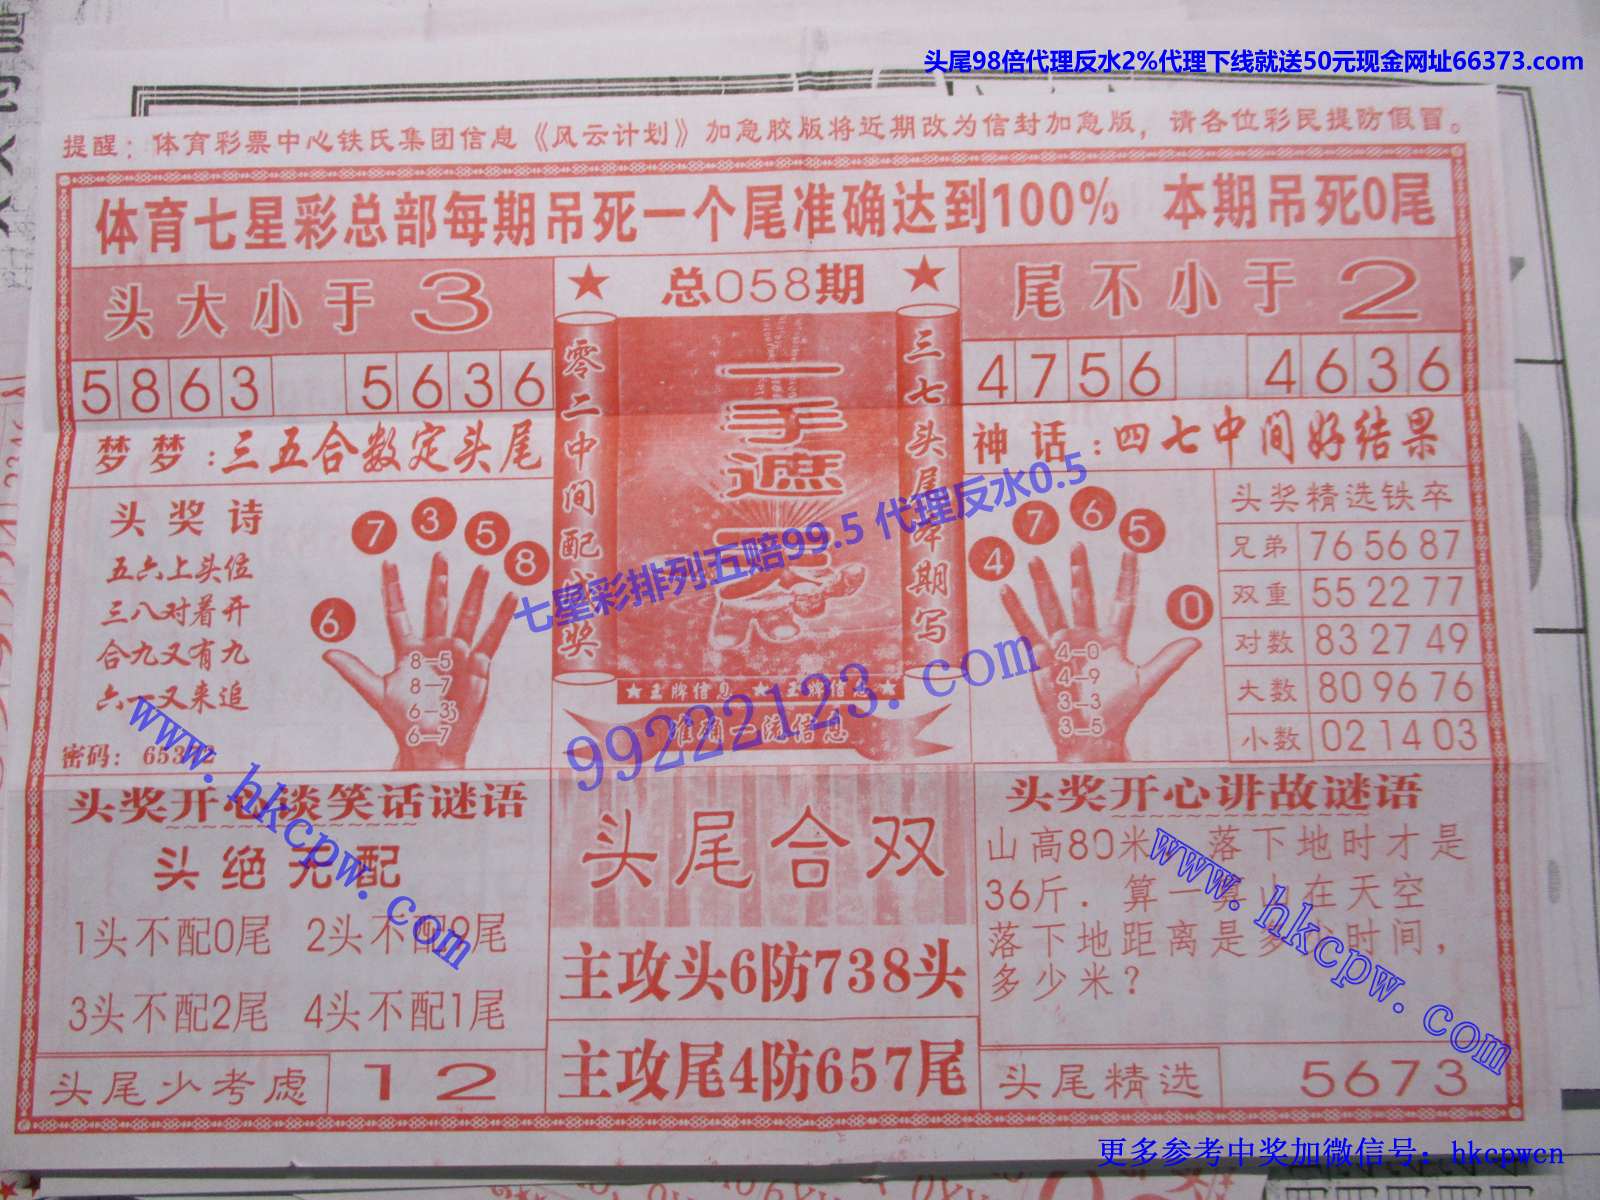 头尾98倍代理反水2%代理下线就送50元现金网址66373.com
提醒：体育彩票中心铁氏集团信息《风云计划》加急胶版将近期改为信封加急版，请各位彩民提防假冒。
体育七星彩总部每期吊死一个尾准确达到100% 本期吊死0尾
头大小于 3
5863 5636
梦梦：三五合数定头尾
头奖诗
五六上头位
三八对着开
合九又有九
六 又来追
密码：653 2
7 3 5 8 6
8-5
8-7
6-3
6-7
★ 总058期 ★
零二中间配 奖
一手遮
三七头尾 期写
★王牌信息 ★ 王牌信息★
准确一流信息
尾不小于 2
4756 4636
神话：四七中间好结果
4 7 6 5 0
4-0
4-9
3-3
3-5
头奖精选铁卒
兄弟 76 56 87
双重 55 22 77
对数 83 27 49
大数 80 96 76
小数 02 14 03
七星彩排列五赔99.5 代理反水0.5
99222123.com
www.hkcpw.com
www.hkcpw.com
头奖开心谈笑话谜语
头绝无配
1头不配0尾 2头不配9尾
3头不配2尾 4头不配1尾
头尾少考虑 12
头尾合双
主攻头6防738头
主攻尾4防657尾
头奖开心讲故谜语
山高80米 落下地时才是
36斤．算一算山在天空
落下地距离是多 时间，
多少米？
头尾精选 5673
更多参考中奖加微信号：hkcpwcn